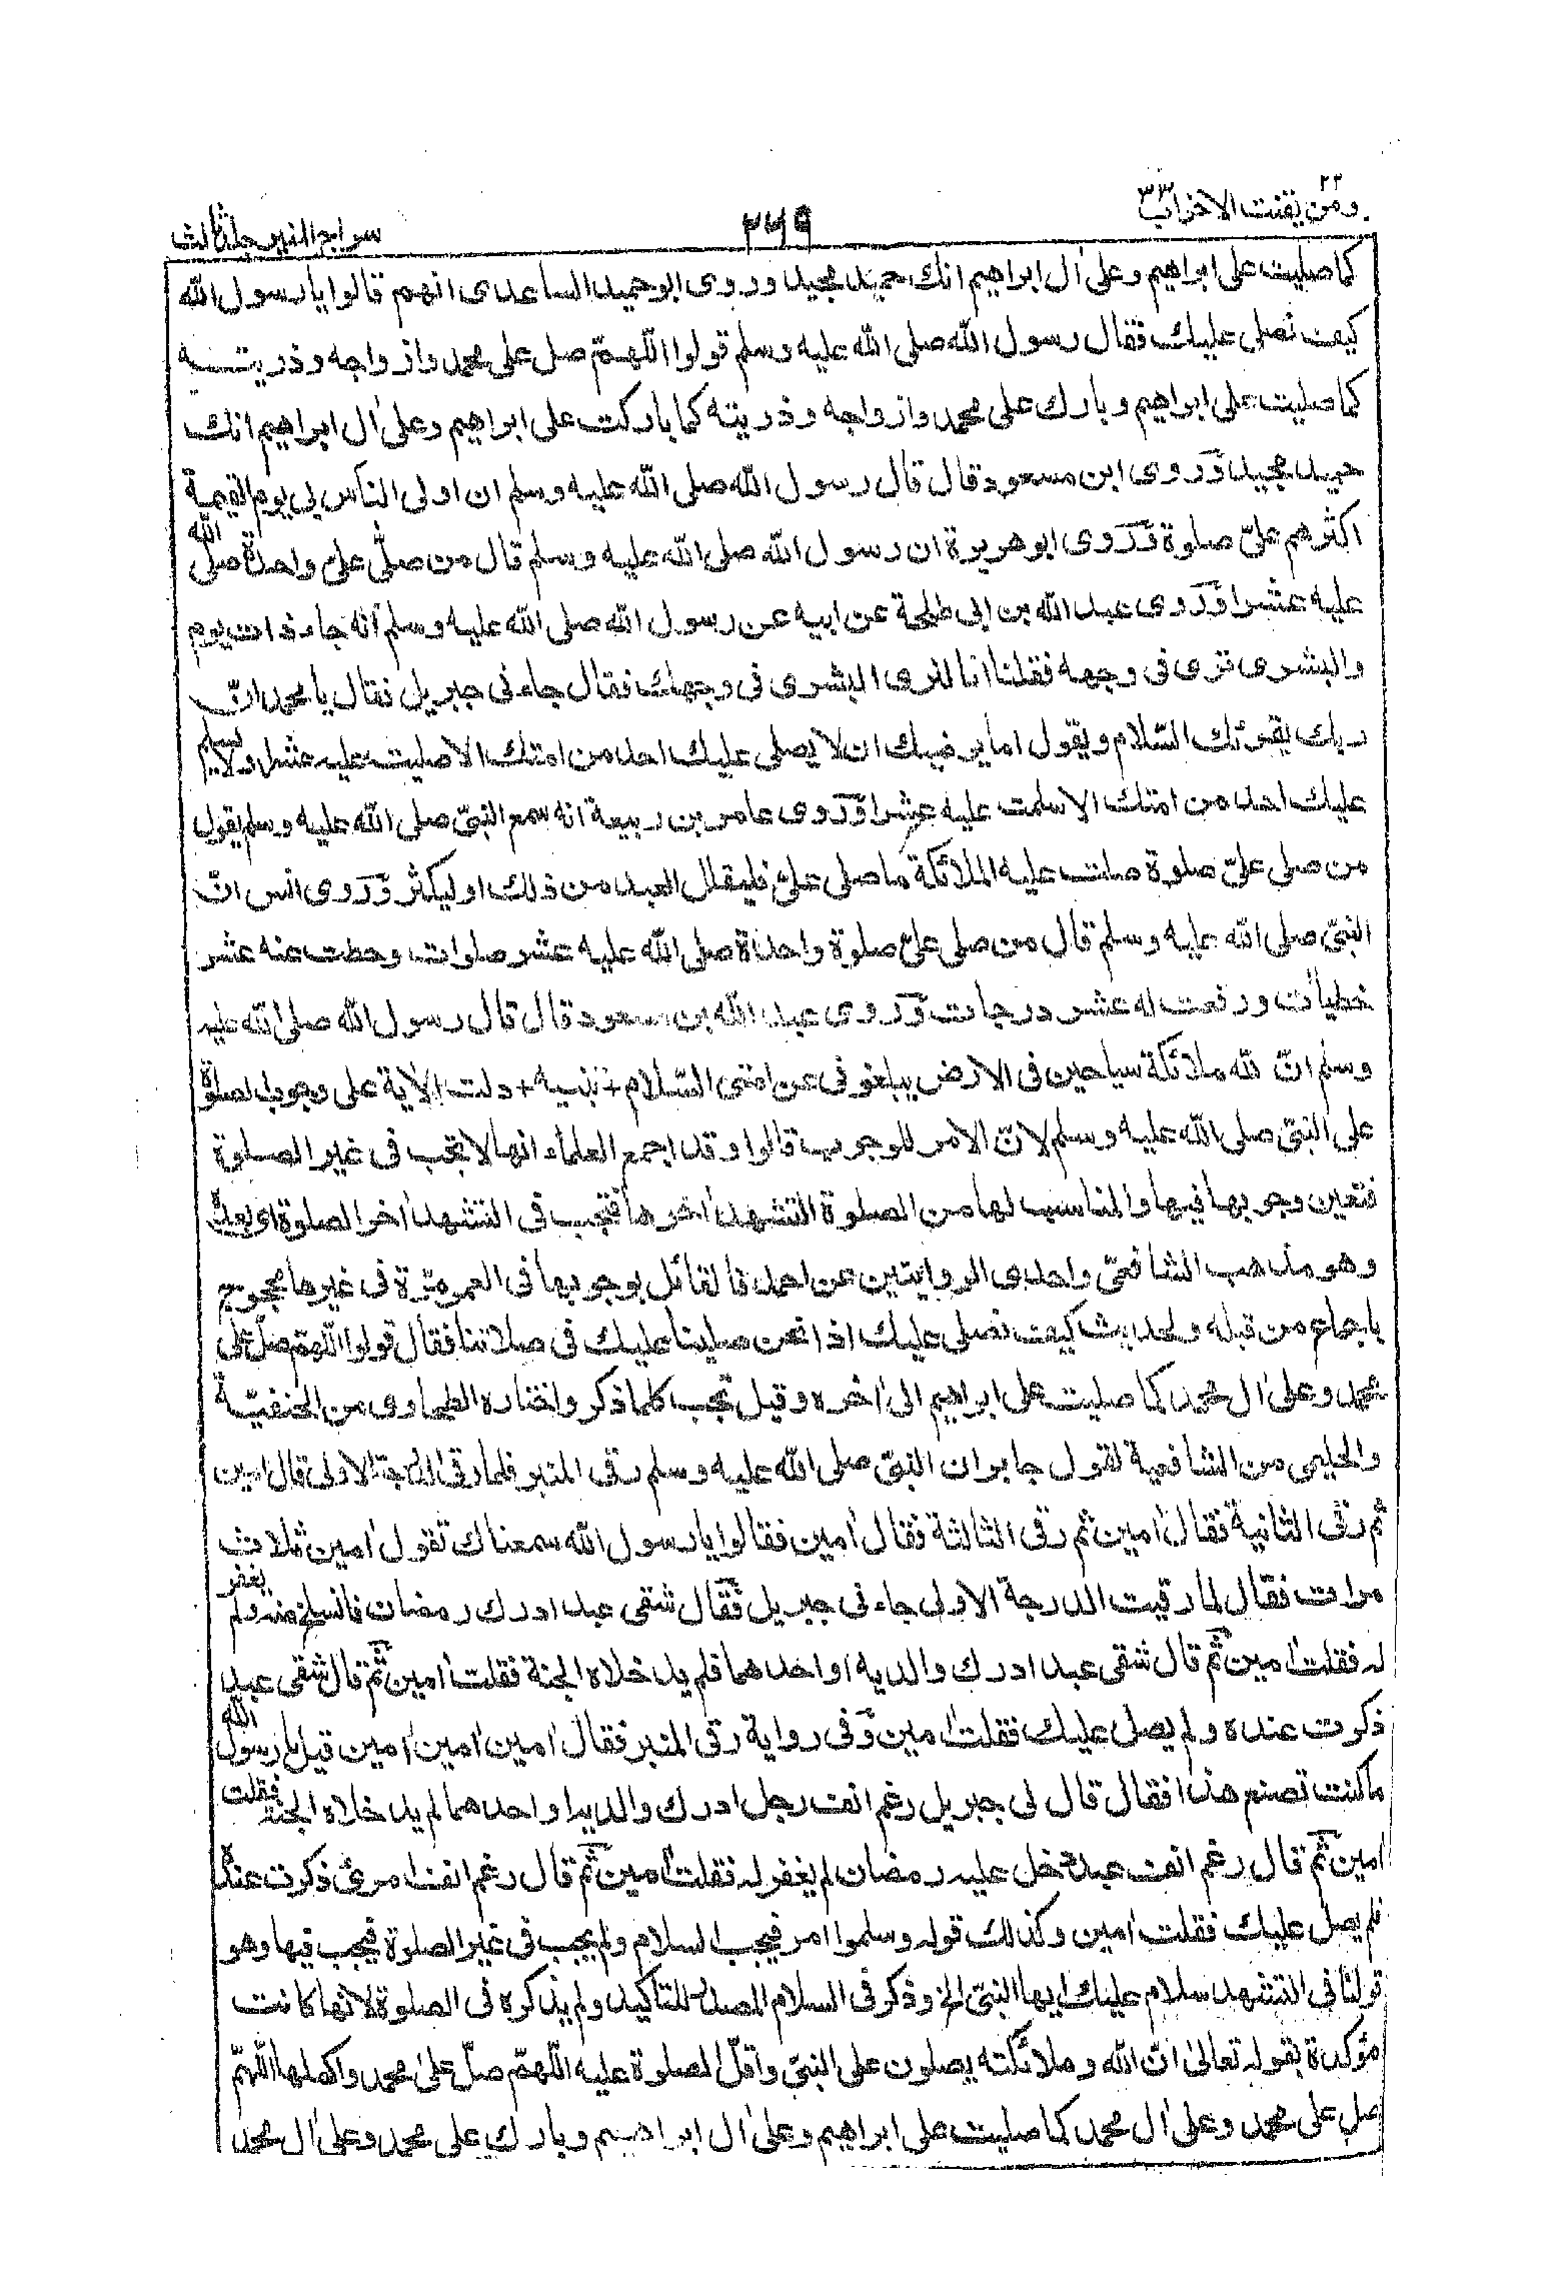 ومن يقنت ٢٢ الاحزاب ٣٣
٢٦٩
سراج المنير جلد ثالث
كما صليت على ابراهيم وعلىٰ اٰل ابراهيم انك حميد مجيد وروى ابو حميد الساعدى انهم قالوا يا رسول الله
كيف نصلى عليك فقال رسول الله صلى الله عليه وسلم قولوا اللّٰهمّ صل على محمد وازواجه وذريته
كما صليت على ابراهيم وبارك على محمد وازواجه وذريته كما باركت على ابراهيم وعلىٰ اٰل ابراهيم انك
حميد مجيد وروى ابن مسعود قال قال رسول الله صلى الله عليه وسلم ان اولى الناس بى يوم القيمة
اكثرهم علىّ صلوة وروى ابو هريرة ان رسول الله صلى الله عليه وسلم قال من صلّى علىّ واحدة صلى الله
عليه عشرا وروى عبد الله بن ابى طلحة عن ابيه عن رسول الله صلى الله عليه وسلم انه جاء ذات يوم
والبشرى ترى فى وجهه فقلنا انا لنرى البشرى فى وجهك فقال جاءنى جبريل فقال يا محمد انّ
ربك يقرئك السّلام ويقول اما يرضيك ان لا يصلى عليك احد من امتك الا صليت عليه عشرا ولا يسلم
عليك احد من امتك الا سلمت عليه عشرا وروى عامر بن ربيعة انه سمع النبىّ صلى الله عليه وسلم يقول
من صلى علىّ صلوة صلت عليه الملائكة ما صلى علىّ فليقلل العبد من ذلك او ليكثر وروى انس انّ
النبىّ صلى الله عليه وسلم قال من صلى علىّ صلوة واحدة صلى الله عليه عشر صلوات وحطت عنه عشر
خطيأت ورفعت له عشر درجات وروى عبد الله بن مسعود قال قال رسول الله صلى الله عليه
وسلم انّ لله ملائكة سياحين فى الارض يبلغونى عن امتى السّلام + تنبيه + دلت الاٰية على وجوب الصلوة
على النبىّ صلى الله عليه وسلم لانّ الامر للوجوب قالوا وقد اجمع العلماء انها لا تجب فى غير الصلوة
فتعين وجوبها فيها والمناسب لها من الصلوة التشهد اٰخرها فتجب فى التشهد اٰخر الصلوة اى بعده
وهو مذهب الشافعىّ واحدى الروايتين عن احمد فالقائل بوجوبها فى العمر مرّة فى غيرها محجوج
باجماع من قبله ولحديث كيف نصلى عليك اذا نحن صلينا عليك فى صلاتنا فقال قولوا اللهمّ صلّ على
محمد وعلىٰ اٰل محمد كما صليت على ابراهيم الىٰ اٰخره وقيل تجب كلما ذكر واختاره الطحاوى من الحنفيّة
والحليمى من الشافعية لقول جابر ان النبىّ صلى الله عليه وسلم رقى المنبر فلما رقى الدرجة الاولى قال اٰمين
ثم رقى الثانية فقال اٰمين ثم رقى الثالثة فقال اٰمين فقالوا يا رسول الله سمعناك تقول اٰمين ثلاث
مرات فقال لما رقيت الدرجة الاولى جاءنى جبريل فقال شقى عبد ادرك رمضان فانسلخ منه ولم يغفر
له فقلت اٰمين ثم قال شقى عبد ادرك والديه او احدهما فلم يدخلاه الجنة فقلت اٰمين ثم قال شقى عبد
ذكرت عنده ولم يصلى عليك فقلت اٰمين وفى رواية رقى المنبر فقال اٰمين اٰمين اٰمين قيل يا رسول الله
ما كنت تصنع هذا فقال قال لى جبريل رغم انف رجل ادرك والديه او احدهما لم يدخلاه الجنة فقلت
اٰمين ثم قال رغم انف عبد دخل عليه رمضان لم يغفر له فقلت اٰمين ثم قال رغم انف امرئ ذكرت عنده
فلم يصل عليك فقلت اٰمين وكذلك قوله وسلموا امر فيجب السلام ولم يجب فى غير الصلوة فيجب فيها وهو
قولنا فى التشهد سلام عليك ايها النبىّ الخ وذكر فى السلام المصدر للتأكيد ولم يذكره فى الصلوة لانها كانت
مؤكدة بقوله تعالىٰ انّ الله وملائكته يصلون على النبىّ واقلّ الصلوة عليه اللّٰهمّ صلّ علىٰ محمد واكملها اللّٰهمّ
صل على محمد وعلىٰ اٰل محمد كما صليت على ابراهيم وعلىٰ اٰل ابراهيم وبارك على محمد وعلىٰ اٰل محمد